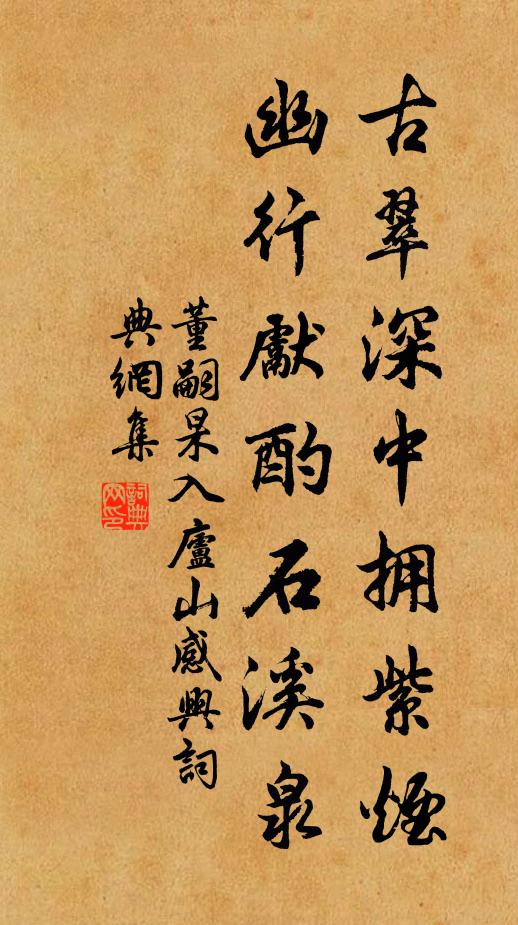 古翠深中拥紫煙
幽行獻酌石溪泉
董嗣杲入廬山感興詞
典網集
詞典網印